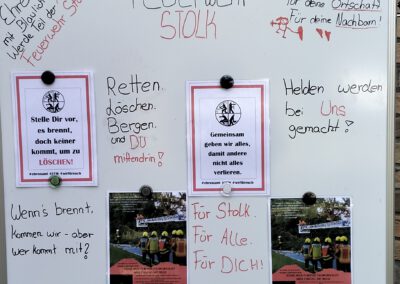 Ehre
mit Blaulich
Werde Teil der
Feuerwehr Stolk
FEUERWEHR
STOLK
für deine Ortschaft
Für deine Nachbarn!
Stelle Dir vor,
es brennt,
doch keiner
kommt, um zu
LÖSCHEN!
Retten.
Löschen.
Bergen.
und DU
mittendrin!
Gemeinsam
geben wir alles,
damit andere
nicht alles
verlieren.
Helden werden
bei Uns
gemacht!
Wenn's brennt,
kommen wir - aber
wer kommt mit?
Für Stolk.
Für Alle.
Für DICH!